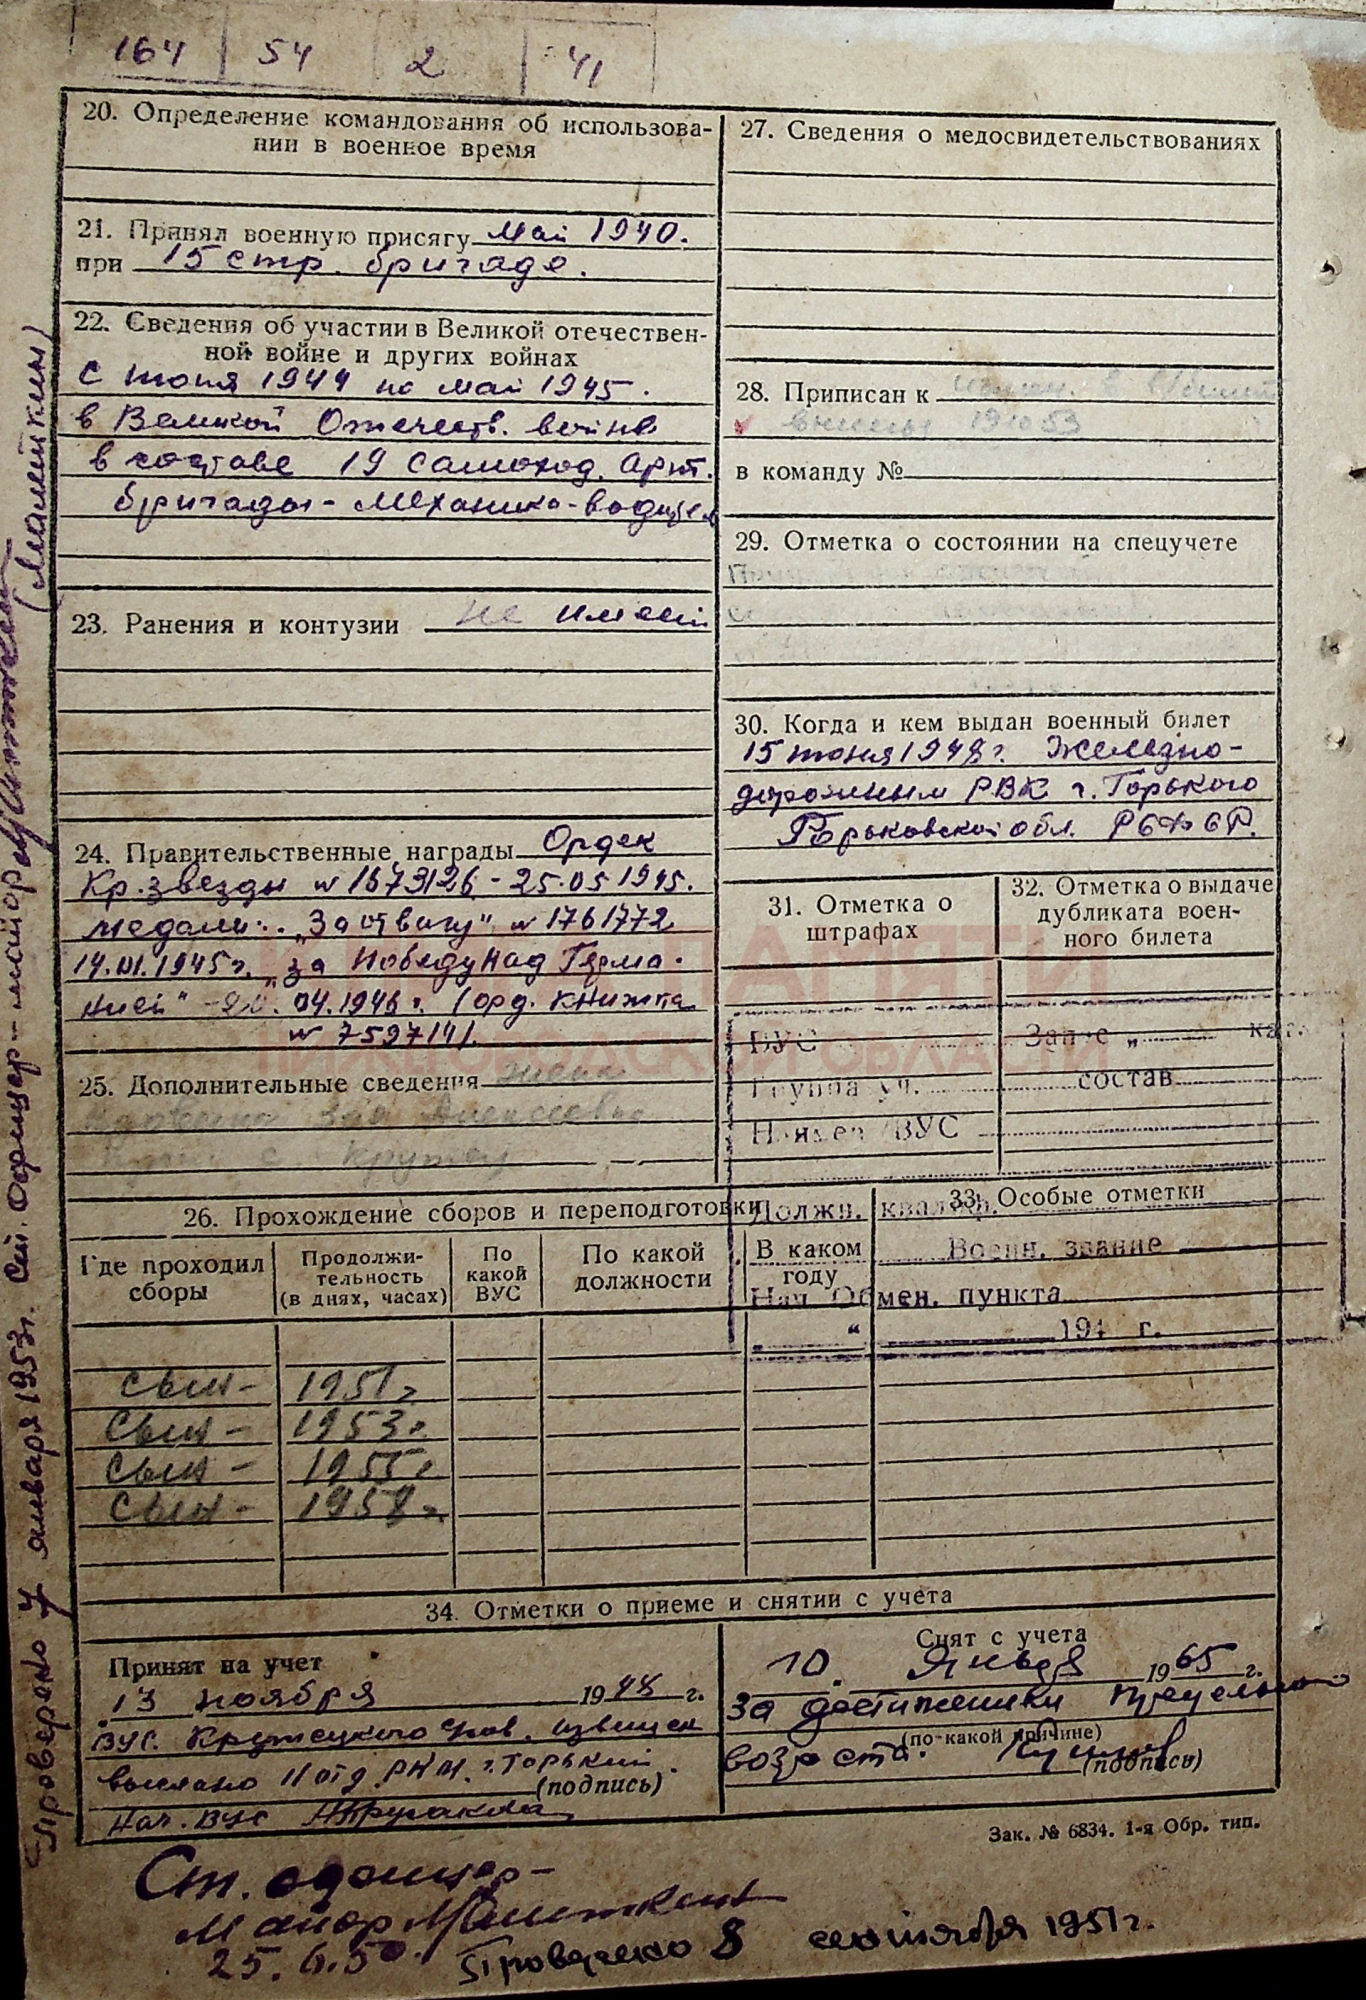 164 54 2 41
20. Определение командования об использова-
нии в военное время
21. Принял военную присягу май 1940.
при 15 стр. бригаде.
22. Сведения об участии в Великой отечествен-
ной войне и других войнах
с июня 1944 по май 1945.
в Великой Отечеств. войне
в составе 19 самоход. арт.
бригады - механика-водител
23. Ранения и контузии не имеет
24. Правительственные награды Орден
Кр. звезды № 1673126 - 25.05.1945.
медали: „За отвагу" № 1761772
14.III.1945 г. „за победу над Герма-
нией" - 20.04.1946 г. (орд. книжка
№ 759714).
25. Дополнительные сведения жена
Зоя Алексеевна
с. Крутец
27. Сведения о медосвидетельствованиях
28. Приписан к
в команду №
29. Отметка о состоянии на спецучете
30. Когда и кем выдан военный билет
15 июня 1948 г. Железно-
дорожным РВК г. Горького
Горьковской обл. РСФСР.
31. Отметка о
штрафах
32. Отметка о выдаче
дубликата воен-
ного билета
ПАМЯТИ
НИЖЕГОРОДСКОЙ ОБЛАСТИ
ВУС Запас „ кат.
Группа уч. состав
Номер ВУС
Должн. квалиф.
Воен. звание
Нач. Обмен. пункта
“ 194 г.
26. Прохождение сборов и переподготовки
33. Особые отметки
Где проходил
сборы
Продолжи-
тельность
(в днях, часах)
По
какой
ВУС
По какой
должности
В каком
году
сын - 1951 г.
сын - 1953 г.
сын - 1955 г.
сын - 1958 г.
34. Отметки о приеме и снятии с учета
Принят на учет
13 ноября 1948 г.
ВУС. Крутецкого извещен
выслано II отд. РКМ. г. Горький.
(подпись)
Нач. ВУС
Снят с учета
10. Января 1965 г.
За достижением предельного
(по какой причине)
возраста.
(подпись)
Зак. № 6834. 1-я Обр. тип.
Ст. офицер -
майор
25. 6. 50.
Проверено 8 сентября 1951 г.
Проверено 7 января 1953 г. Ст. офицер - майор